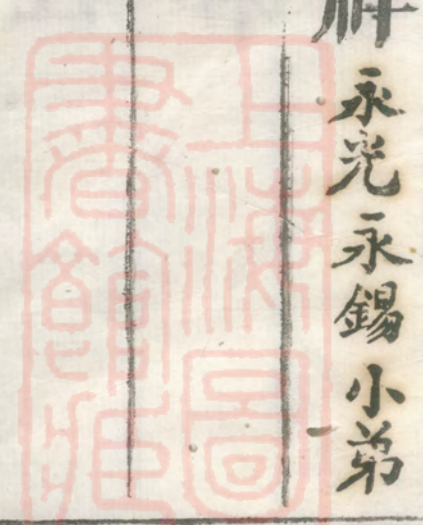 永光永錫小弟
上海圖
書館藏